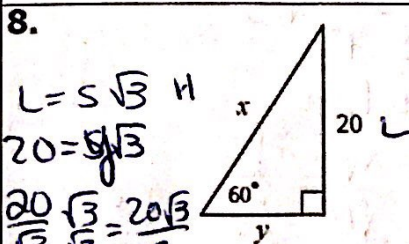 8.
L = S √3 H
20 = y√3
20/√3 √3/√3 = 20√3/
x
20 L
60°
y